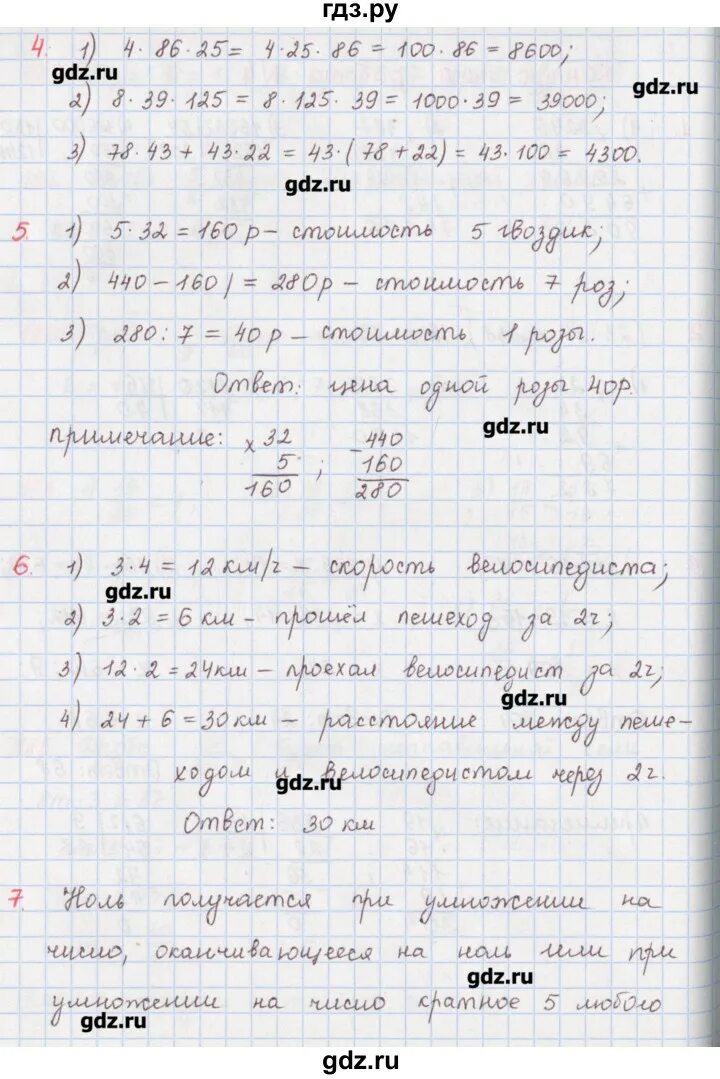 гдз.ру
4. 1) 4 · 86 · 25 = 4 · 25 · 86 = 100 · 86 = 8600;
gdz.ru
gdz.ru
2) 8 · 39 · 125 = 8 · 125 · 39 = 1000 · 39 = 39000;
3) 78 · 43 + 43 · 22 = 43 · (78 + 22) = 43 · 100 = 4300.
gdz.ru
5. 1) 5 · 32 = 160 р – стоимость 5 гвоздик;
2) 440 – 160 = 280р – стоимость 7 роз;
3) 280 : 7 = 40 р – стоимость 1 розы.
Ответ: цена одной розы 40р.
gdz.ru
примечание: × 32 – 440
5 ; 160
160 280
6. 1) 3 · 4 = 12 км/ч – скорость велосипедиста;
gdz.ru
2) 3 · 2 = 6 км – прошёл пешеход за 2ч;
3) 12 · 2 = 24км – проехал велосипедист за 2ч;
gdz.ru
4) 24 + 6 = 30 км – расстояние между пеше-
ходом и велосипедистом через 2ч.
gdz.ru
Ответ: 30 км
7. Ноль получается при умножении на
число, оканчивающееся на ноль или при
gdz.ru
умножении на число кратное 5 любого
gdz.ru
gdz.ru